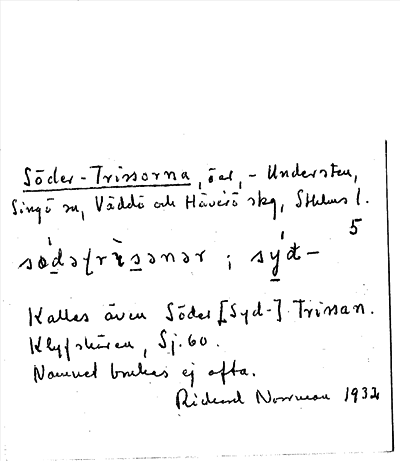 Söder-Trissorna, öar, - Understen,
Singö sn, Väddö och Häverö skg, Sthlms l.
5
sǿ̱dətrı̱̀sənər ; sý̱d-
Kallas även Söder [Syd-] Trissan.
Klyfskären, Sj. 60.
Namnet brukas ej ofta.
Rickard Norrman 1932